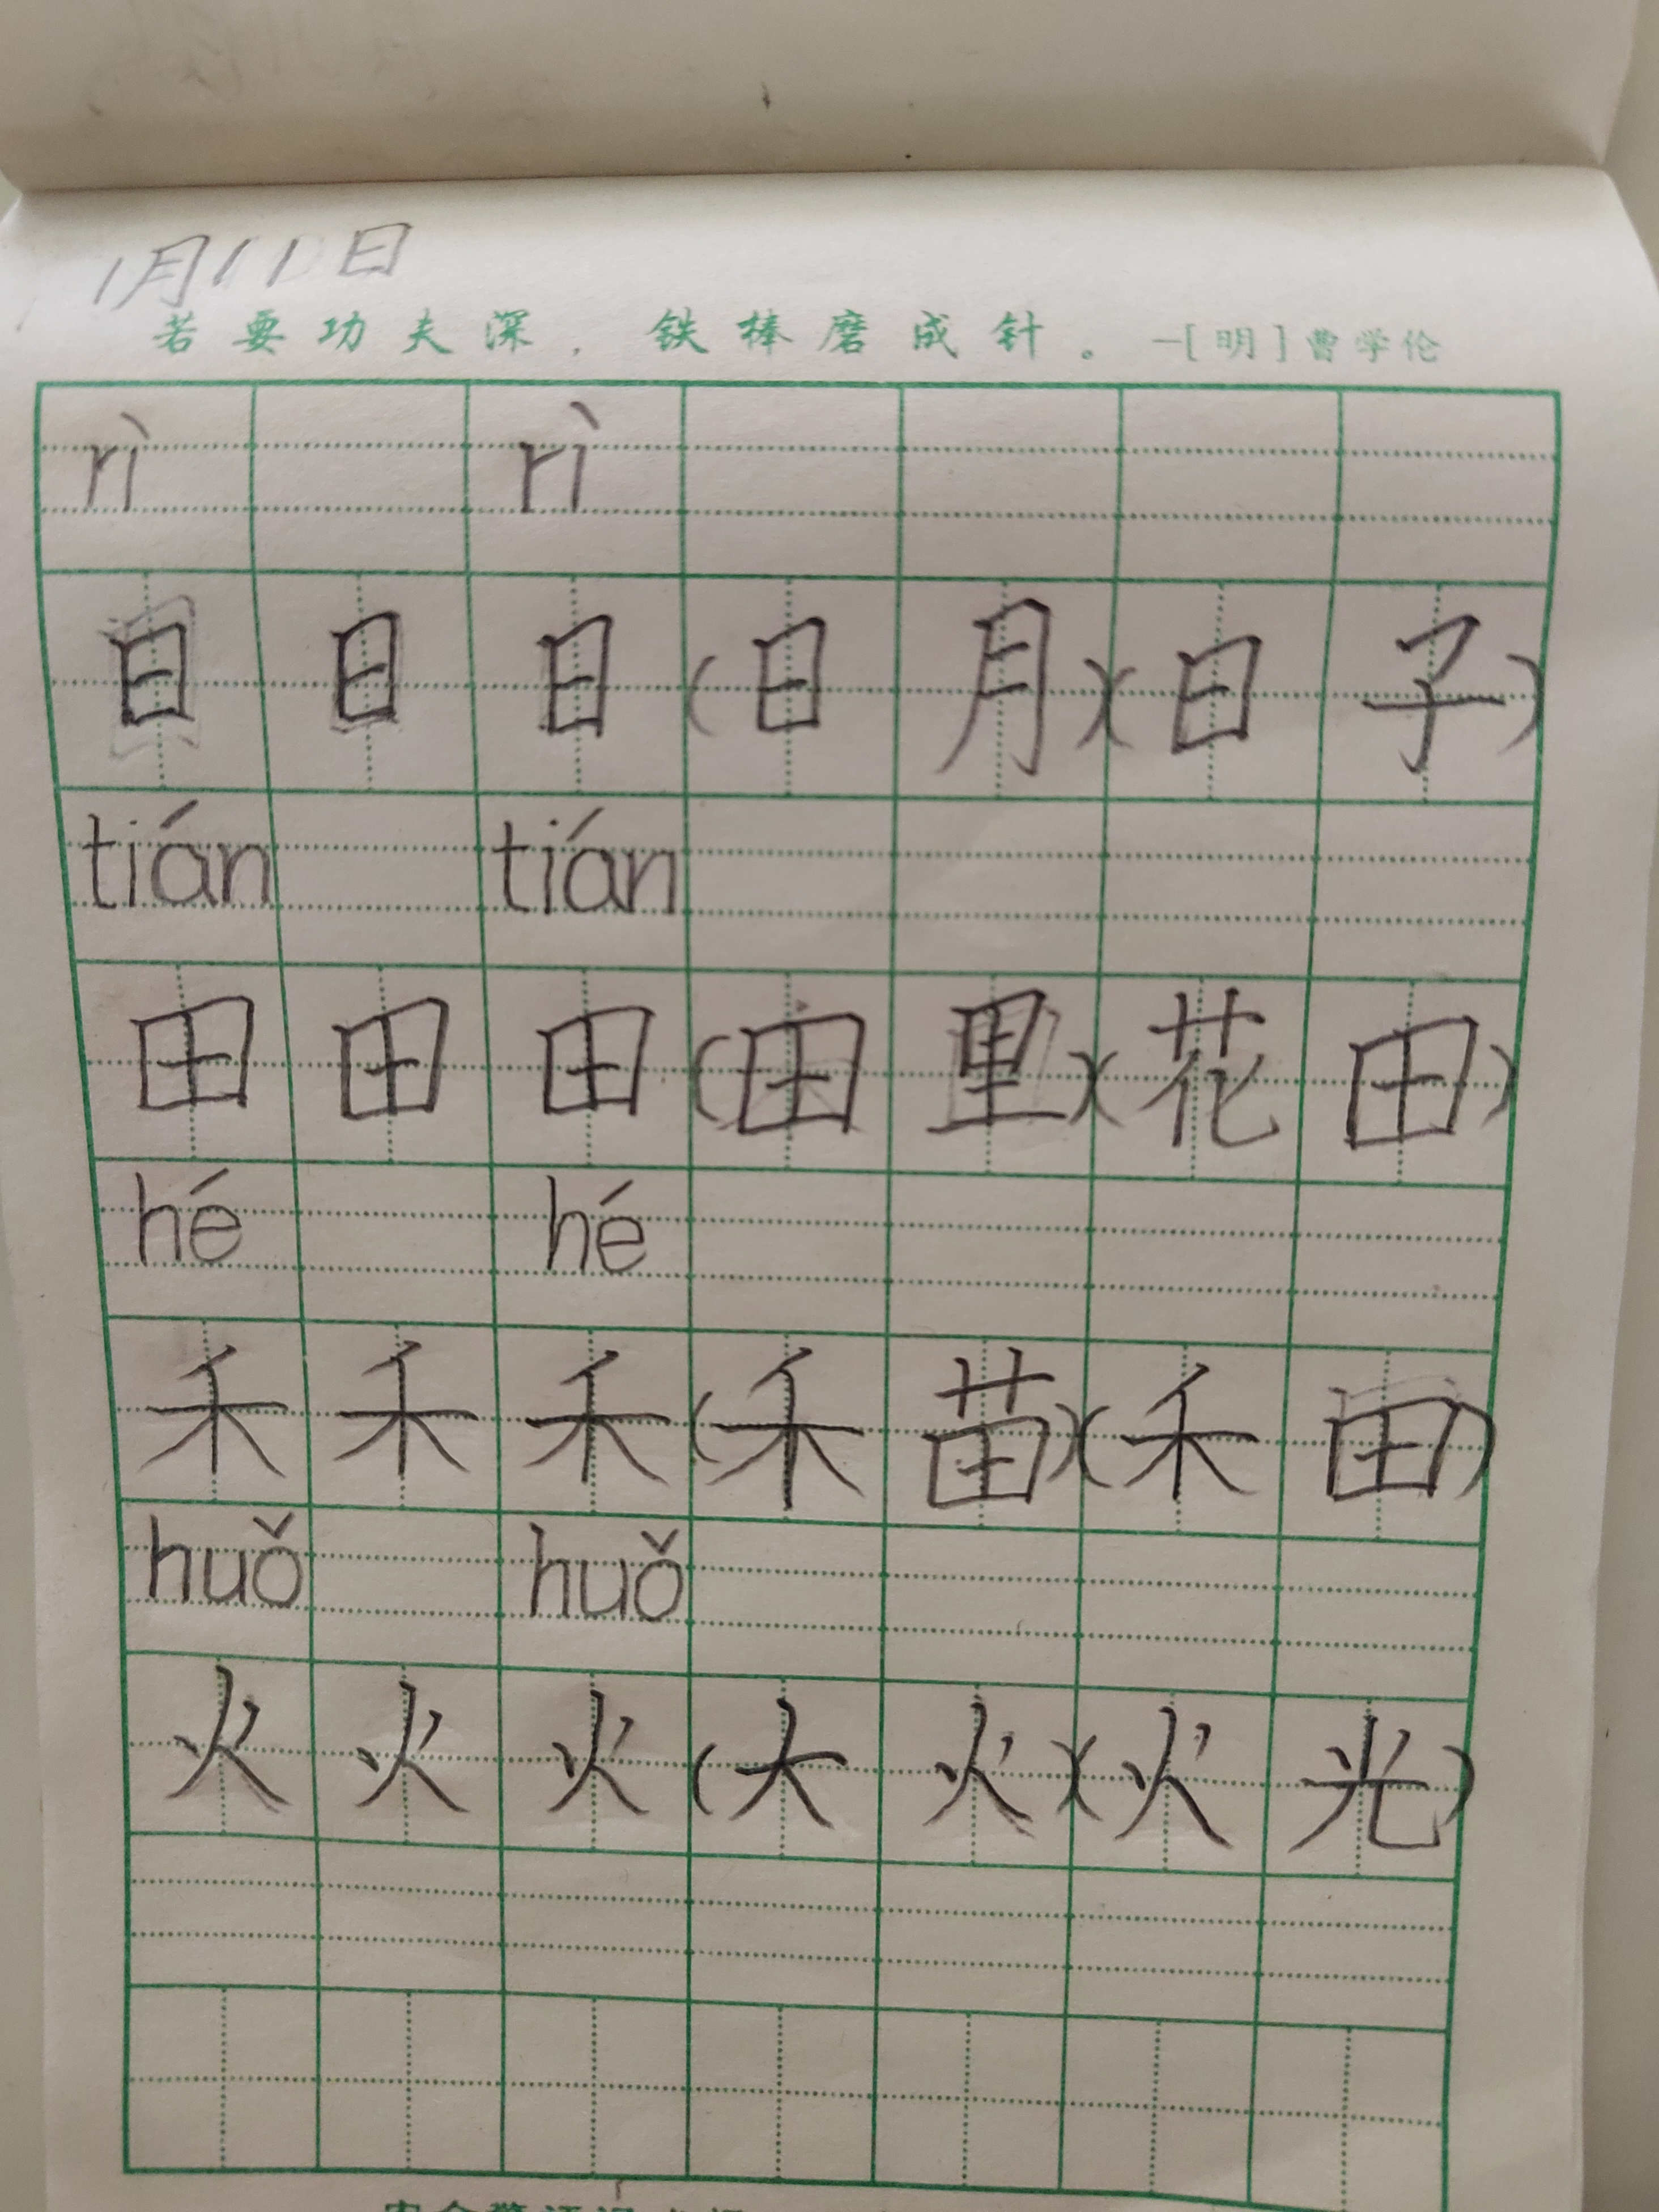 1月11日
若要功夫深，铁棒磨成针。—[明]曹学伦
rì rì
日 日 日 (日 月)(日 子)
tián tián
田 田 田 (田 里)(花 田)
hé hé
禾 禾 禾 (禾 苗)(禾 田)
huǒ huǒ
火 火 火 (大 火)(火 光)